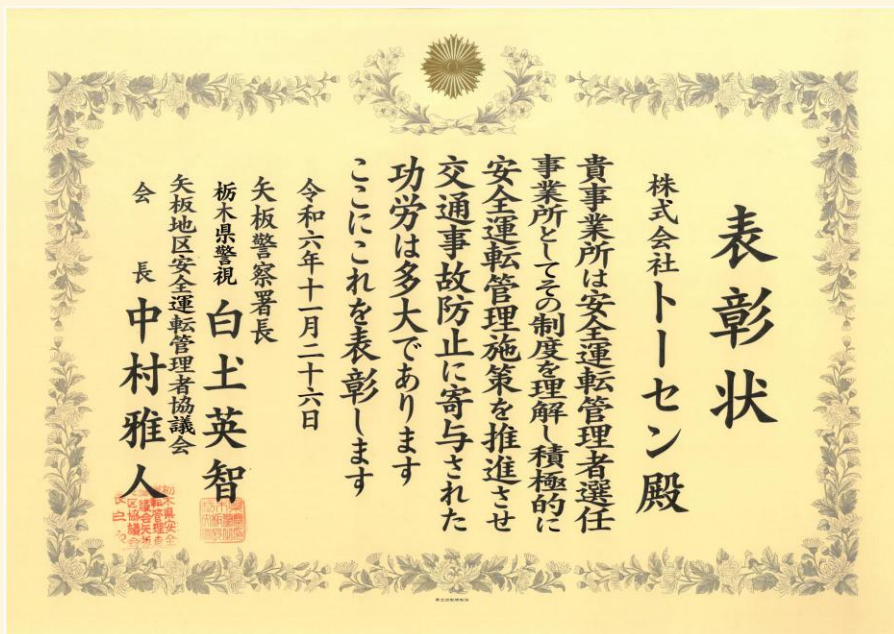 表彰状
株式会社トーセン殿
貴事業所は安全運転管理者選任
事業所としてその制度を理解し積極的に
安全運転管理施策を推進させ
交通事故防止に寄与された
功労は多大であります
ここにこれを表彰します
令和六年十一月二十六日
矢板警察署長
栃木県警視 白土英智
矢板地区安全運転管理者協議会
会長 中村雅人